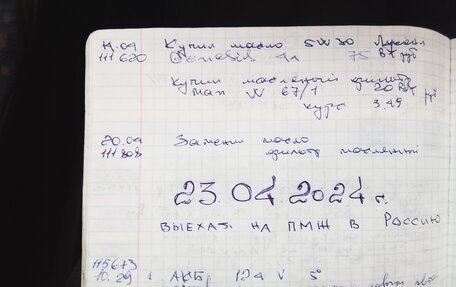 19.04 Купил масло 5W30 Лукойл
111620 Genesis 4л 75
купил масляный фильтр
Man W 67/1 20
курс 3,49
20.04 Заменил масло
111808 фильтр масляный
23.04.2024 г.
ВЫЕХАЛ НА ПМЖ В РОССИЮ
115673
10.29 АКБ 12.4 V 5°